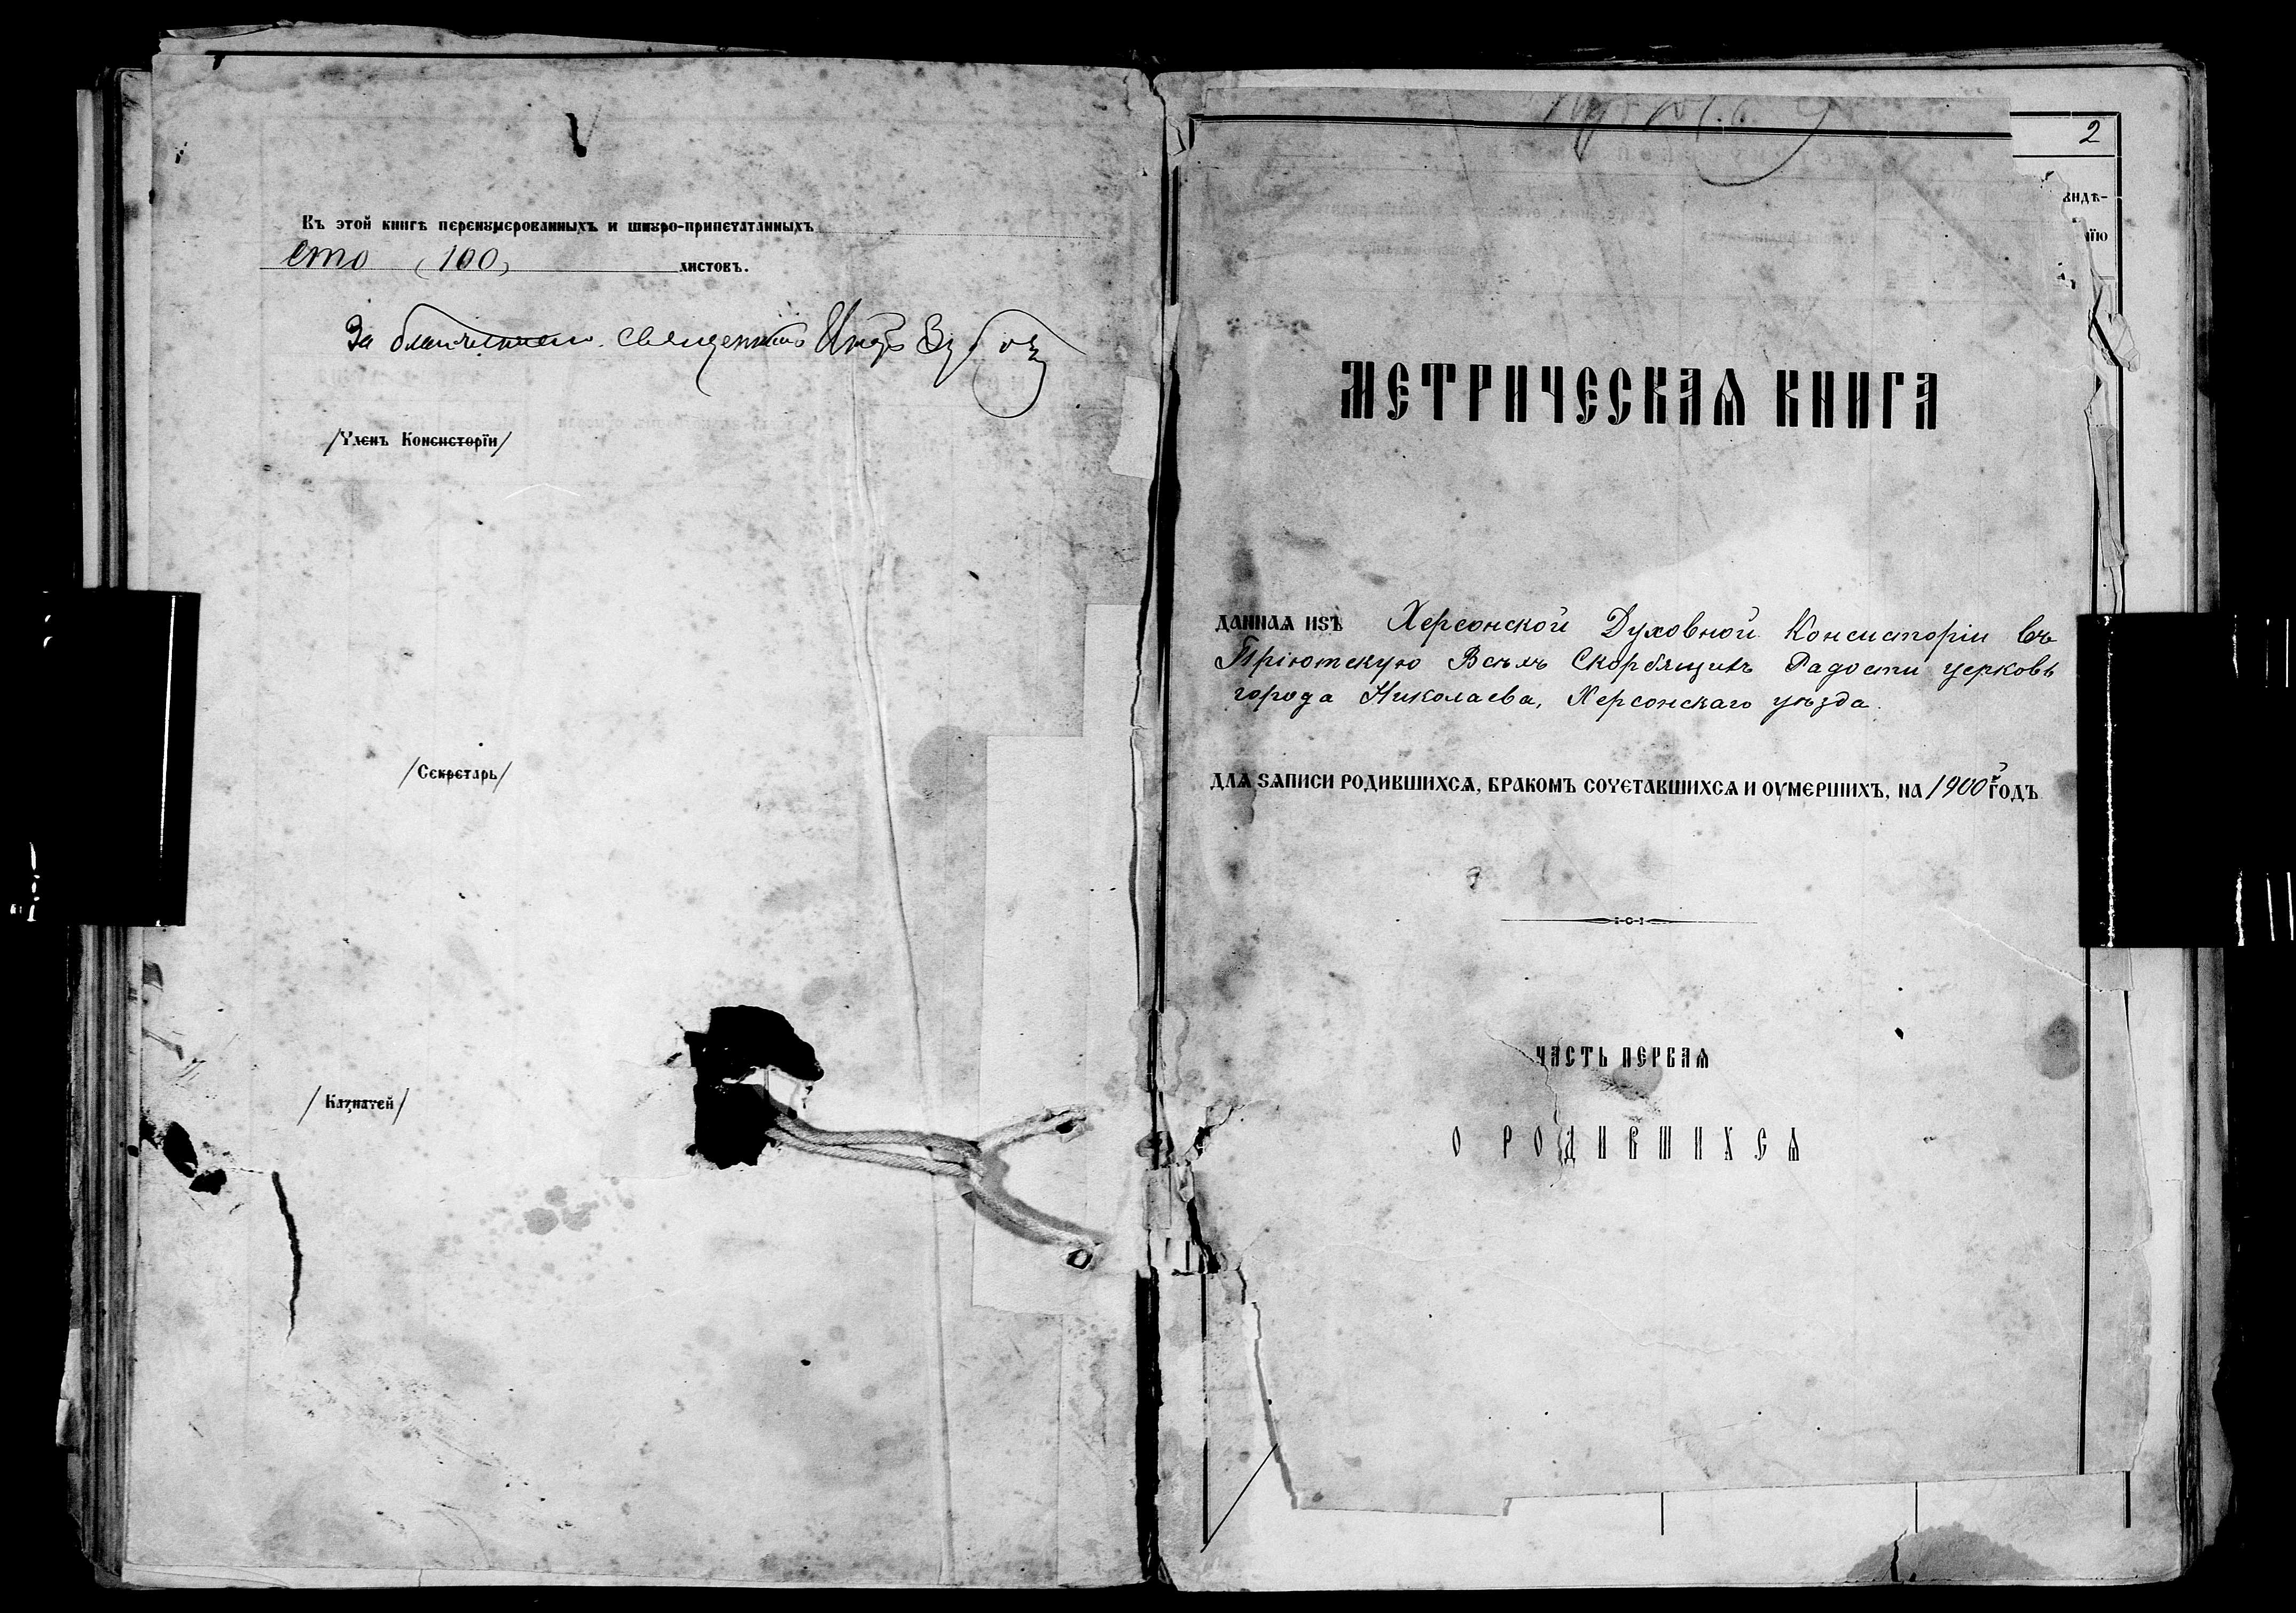 Въ этой книгѣ перенумерованныхъ и шнуро-припечатанныхъ
сто (100) листовъ.
За благочиннаго священникъ
/Членъ Консисторіи/
/Секретарь/
/Казначей/
2
видѣ-
нію
МЕТРИЧЕСКАѦ КНИГА
ДАННАѦ ИЗЪ Херсонской Духовной Консисторіи въ
Пріютскую Всѣхъ Скорбящихъ Радости церковь
города Николаева, Херсонскаго уѣзда.
ДЛѦ ЗАПИСИ РОДИВШИХСѦ, БРАКОМЪ СОЧЕТАВШИХСѦ И ОУМЕРШИХЪ, НА 1900й ГОДЪ
ЧАСТЬ ПЕРВАѦ
О РОДИВШИХСѦ